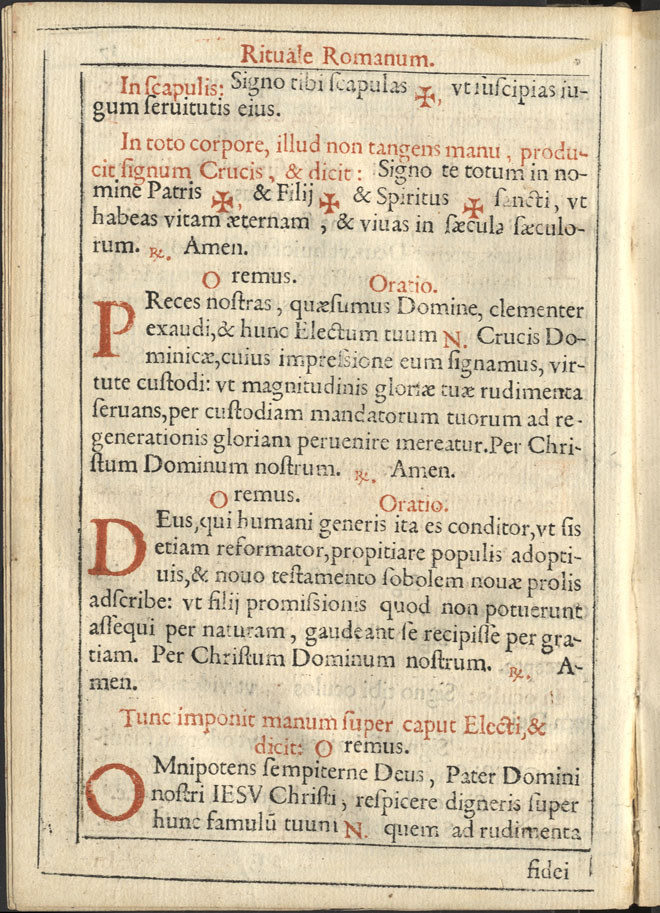 Rituale Romanum.
In ſcapulis: Signo tibi ſcapulas ✠, vt ſuſcipias iu-
gum ſeruitutis eius.
In toto corpore, illud non tangens manu, produ-
cit ſignum Crucis, & dicit: Signo te totum in no-
mine Patris ✠, & Filij ✠ & Spiritus ✠ ſancti, vt
habeas vitam æternam, & viuas in ſæcula ſæculo-
rum. ℞. Amen.
Oremus. Oratio.
PReces noſtras, quæſumus Domine, clementer
exaudi,& hunc Electum tuum N. Crucis Do-
minicæ,cuius impreſſione eum ſignamus, vir-
tute cuſtodi: vt magnitudinis gloriæ tuæ rudimenta
ſeruans,per cuſtodiam mandatorum tuorum ad re-
generationis gloriam peruenire mereatur.Per Chri-
ſtum Dominum noſtrum. ℞. Amen.
Oremus. Oratio.
DEus,qui humani generis ita es conditor,vt ſis
etiam reformator,propitiare populis adopti-
uis,& nouo teſtamento ſobolem nouæ prolis
adſcribe: vt filij promiſſionis quod non potuerunt
aſſequi per naturam, gaudeant ſe recipiſſe per gra-
tiam. Per Chriſtum Dominum noſtrum. ℞. A-
men.
Tunc imponit manum ſuper caput Electi,&
dicit: Oremus.
OMnipotens ſempiterne Deus, Pater Domini
noſtri IESV Chriſti, reſpicere digneris ſuper
hunc famulũ tuum N. quem ad rudimenta
fidei